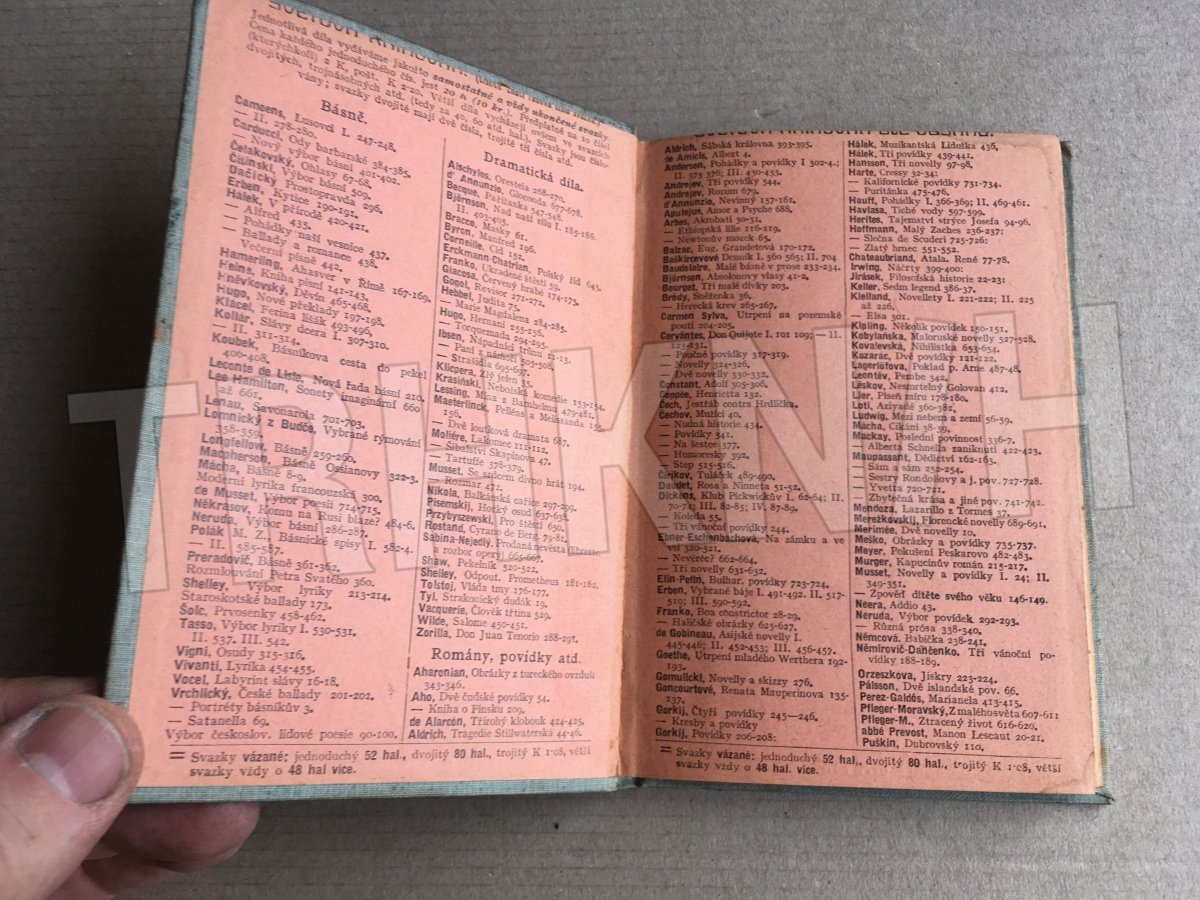 Jednotlivá díla vydáváme jakožto samostatné a vždy ukončené svazky.
Cena každého jednoduchého čís. jest 20 h (10 kr.). Předplatné na 10 čísel
(kterýchkoli) 2 K, pošt. K 2·20. Větší díla vycházejí ovšem ve svazcích
dvojitých, trojnásobných atd. (tedy za 40, 60 atd. hal.). Svazky jsou číslo-
vány; svazky dvojité mají dvě čísla, trojité tři čísla atd.
Básně.
Camoens, Lusovci I. 247-248.
— II. 278-280.
Carducci, Ódy barbarské 384-385.
— Nový výbor básní 401-402.
Čelakovský, Ohlasy 67-68.
Čišinski, Výbor básní 509.
Dačický Prostopravda 296.
Erben, Kytice 190-191.
Hálek, V přírodě 420-421.
— Alfred 435.
— Pohádky naší vesnice 437.
— Ballady a romance 438.
Večerní písně 442.
Hamerling, Ahasver v Římě 167-169.
Heine, Kniha písní 141-143.
Hněvkovský, Děvín 465-468.
Hugo, Nové překlady 197-198.
Klácel, Ferina lišák 493-496.
Kollár, Slávy dcera I. 307-310.
— II. 311-314.
Koubek, Básníkova cesta do pekel
406-408.
Leconte de Lisle, Nová řada básní 210.
Lee Hamilton, Sonety imaginární 660
až 661.
Lenau, Savonarola 701-703.
Lomnický z Budče, Vybrané rýmování
358-359.
Longfellow, Básně 259-260.
Macpherson, Básně Ossianovy 322-3.
Mácha, Básně 8-9.
Moderní lyrika francouzská 300.
de Musset, Výbor poesií 714-715.
Někrasov, Komu na Rusi blaze? 484-6.
Neruda, Výbor básní 286-287.
Polák M. Z., Básnické spisy I. 582-4.
— II. 585-587.
Preradović, Básně 361-362.
Rozmlouvání Petra Svatého 360.
Shelley, Výbor lyriky 213-214.
Staroskotské ballady 173.
Šolc, Prvosenky 458-462.
Tasso, Výbor lyriky I. 530-531.
II. 537. III. 542.
Vigni, Osudy 315-316.
Vivanti, Lyrika 454-455.
Vocel, Labyrint slávy 16-18.
Vrchlický, České ballady 201-202.
— Portréty básníků 3.
— Satanella 69.
Výbor českoslov. lidové poesie 90-100.
Dramatická díla.
Aischylos, Oresteia 268-270.
d' Annunzio, Gioconda 677-678.
Becque, Pařížanka 547-548.
Björnson, Nad naši sílu I. 185-186.
II. 403-405.
Bracco, Masky 61.
Byron, Manfred 196.
Corneille, Cid 152.
Erckmann-Chatrian, Polský žid 645.
Franko, Ukradené štěstí 59.
Giacosa, Červený hrabě 174-175.
Gogol, Revisor 271-272.
Hebbel, Judita 72.
— Marie Magdalena 284-285.
Hugo, Hernani 255-256.
— Torquemada 294-295.
Ibsen, Nápadníci trůnu 11-13.
— Paní z námoří 505-508.
— Strašidla 695-697.
Klicpera, Zlý jelen 35.
Krasiński, Nebožská komedie 153-154.
Lessing, Mina z Barnhelmu 479-481.
Maeterlinck, Pelléas a Melissanda 155-
156.
— Dvě loutková dramata 687.
Molière, Lakomec 111-112.
— Šibalství Skapinova 47.
— Tartuffe 378-379.
Musset, Se srdcem divno hrát 194.
— Rozmar 42.
Nikola, Balkánská cařice 297-299.
Pisemskij, Hořký osud 637-638.
Przybyszewski, Pro štěstí 650.
Rostand, Cyrano de Berg. 79-81.
Sabina-Nejedlý, Prodaná nevěsta (libretto
a rozbor opery) 665-667.
Shaw, Pekelník 520-522.
Shelley, Odpout. Prometheus 181-182.
Tolstoj, Vláda tmy 176-177.
Tyl, Strakonický dudák 19.
Vacquerie, Člověk třtina 529.
Wilde, Salome 450-451.
Zorilla, Don Juan Tenorio 288-291.
Romány, povídky atd.
Aharonian, Obrázky z tureckého ovzduší
343-346.
Aho, Dvě čudské povídky 54.
— Kniha o Finsku 209.
de Alarcón, Třírohý klobouk 424-425.
Aldrich, Tragedie Stillwaterská 44-46.
= Svazky vázané: jednoduchý 52 hal., dvojitý 80 hal., trojitý K 1·08, větší
svazky vždy o 48 hal. více.
Aldrich, Sábská královna 393-395.
de Amicis, Albert 4.
Andersen, Pohádky a povídky I 302-4.;
II. 375 376; III. 430-433.
Andrejev, Tři povídky 544.
Andrejev, Rozum 679.
d'Annunzio, Nevinný 157-161.
Apulejus, Amor a Psyche 688.
Arbes, Akrobati 30-31.
— Ethiopská lilie 116-119.
— Newtonův mozek 65.
Balzac, Eug. Grandetová 170-172.
Baškircevové Denník I. 560 565; II. 704
Baudelaire, Malé básně v prose 233-234.
Björnson, Absolonovy vlasy 41-2.
Bourget, Tři malé dívky 203.
Bródy, Sněženka 36.
— Herecká krev 265-267.
Carmen Sylva, Utrpení na pozemské
pouti 204-205.
Cervántes, Don Quijote I. 101 109; — II.
123-131.
— Poučné povídky 317-319.
— Novelly 324-326.
— Dvě novelly 330-332.
Constant, Adolf 305-306.
Coppée, Henrietta 132.
Čech, Jestřáb contra Hrdlička.
Čechov, Mužíci 40.
— Nudná historie 434.
— Povídky 341.
— Na šestce 377.
— Humoresky 392.
— Step 515-516.
Čirikov, Tuláček 489-490.
Daudet, Rosa a Ninneta 51-52.
Dickens, Klub Pickwickův I. 62-64; II.
70-71; III. 82-85; IV. 87-89.
— Koleda 55.
— Tři vánoční povídky 244.
Ebner-Eschenbachová, Na zámku a ve
vsi 320-321.
— Nevěrec? 662-664.
— Tři novelly 631-632.
Elin-Pelin, Bulhar. povídky 723-724.
Erben, Vybrané báje I. 491-492. II. 517-
519; III. 590-592.
Franko, Boa constrictor 28-29.
— Haličské obrázky 625-627.
de Gobineau, Asijské novelly I.
445-446; II. 452-453; III. 456-457.
Goethe, Utrpení mladého Werthera 192-
193.
Gomulicki, Novelly a skizzy 276.
Goncourtové, Renata Mauperinova 135-
137.
Gorkij, Čtyři povídky 245—246.
— Kresby a povídky
Gorkij, Povídky 206-208:
Hálek, Muzikantská Liduška 436.
Hálek, Tři povídky 439-441.
Hansson, Tři novelly 97-98.
Harte, Cressy 32-34:
— Kalifornické povídky 731-734.
— Puritánka 475-476.
Hauff, Pohádky I. 366-369; II. 469-461.
Havlasa, Tiché vody 597-599.
Herites, Tajemství strýce Josefa 94-96.
Hoffmann, Malý Zaches 236-237:
— Slečna de Scuderi 725-726:
— Zlatý hrnec 551-552.
Chateaubriand, Atala. René 77-78.
Irwing, Náčrty 399-400:
Jirásek, Filosofská historie 22-231
Keller, Sedm legend 386-37.
Kielland, Novelletty I. 221-222; II. 225
až 226.
— Elsa 301.
Kipling, Několik povídek 150-151.
Kobylańska, Maloruské novelly 527-528.
Kovalevská, Nihilistka 653-654.
Kozarac, Dvě povídky 121-122.
Lagerlöfova, Poklad p. Arne 487-48.
Leontěv, Pembe 342.
Lěskov, Nesmrtelný Golovan 412.
Lier, Píseň míru 178-180.
Loti, Aziyadé 360-382.
Ludwig, Mezi nebem a zemí 56-59.
Mácha, Cikáni 38-39.
Mackay, Poslední povinnost 336-7.
— Alberta Schnella zaniknutí 422-423.
Maupassant, Dědictví 162-163.
— Sám a sám 252-254.
— Sestry Rondoliovy a j. pov. 727-728.
— Yvetta 720-721.
— Zbytečná krása a jiné pov. 741-742.
Mendoza, Lazarillo z Tormes 37.
Merežkovskij, Florencké novelly 689-691.
Merimée, Dvě novelly 10.
Meško, Obrázky a povídky 735-737.
Meyer, Pokušení Peskarovo 482-483.
Murger, Kapucínův román 215-217.
Musset, Novelly a povídky I. 24; II.
349-351.
— Zpověď dítěte svého věku 146-149.
Neera, Addio 43.
Neruda, Výbor povídek 292-293.
— Různá prósa 338-340.
Němcová, Babička 238-241.
Němirovič-Dančenko, Tři vánoční po-
vídky 188-189.
Orzeszkowa, Jiskry 223-224.
Pálsson, Dvě islandské pov. 66.
Perez-Galdós, Marianela 413-415.
Pfleger-Moravský, Z malého světa 607-611
Pfleger-M., Ztracený život 616-620.
abbé Prevost, Manon Lescaut 20-21.
Puškin, Dubrovský 110.
= Svazky vázané: jednoduchý 52 hal., dvojitý 80 hal., trojitý K 1·08, větší
svazky vždy o 48 hal. vice.
TRHKNIH